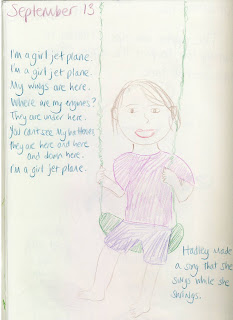 September 13
I'm a girl jet plane
I'm a girl jet plane.
My wings are here.
Where are my engines?
They are under here.
You can't see my buttons
they are here and here
and down here.
I'm a girl jet plane.
Hadley made
a song that she
sings while she
swings.